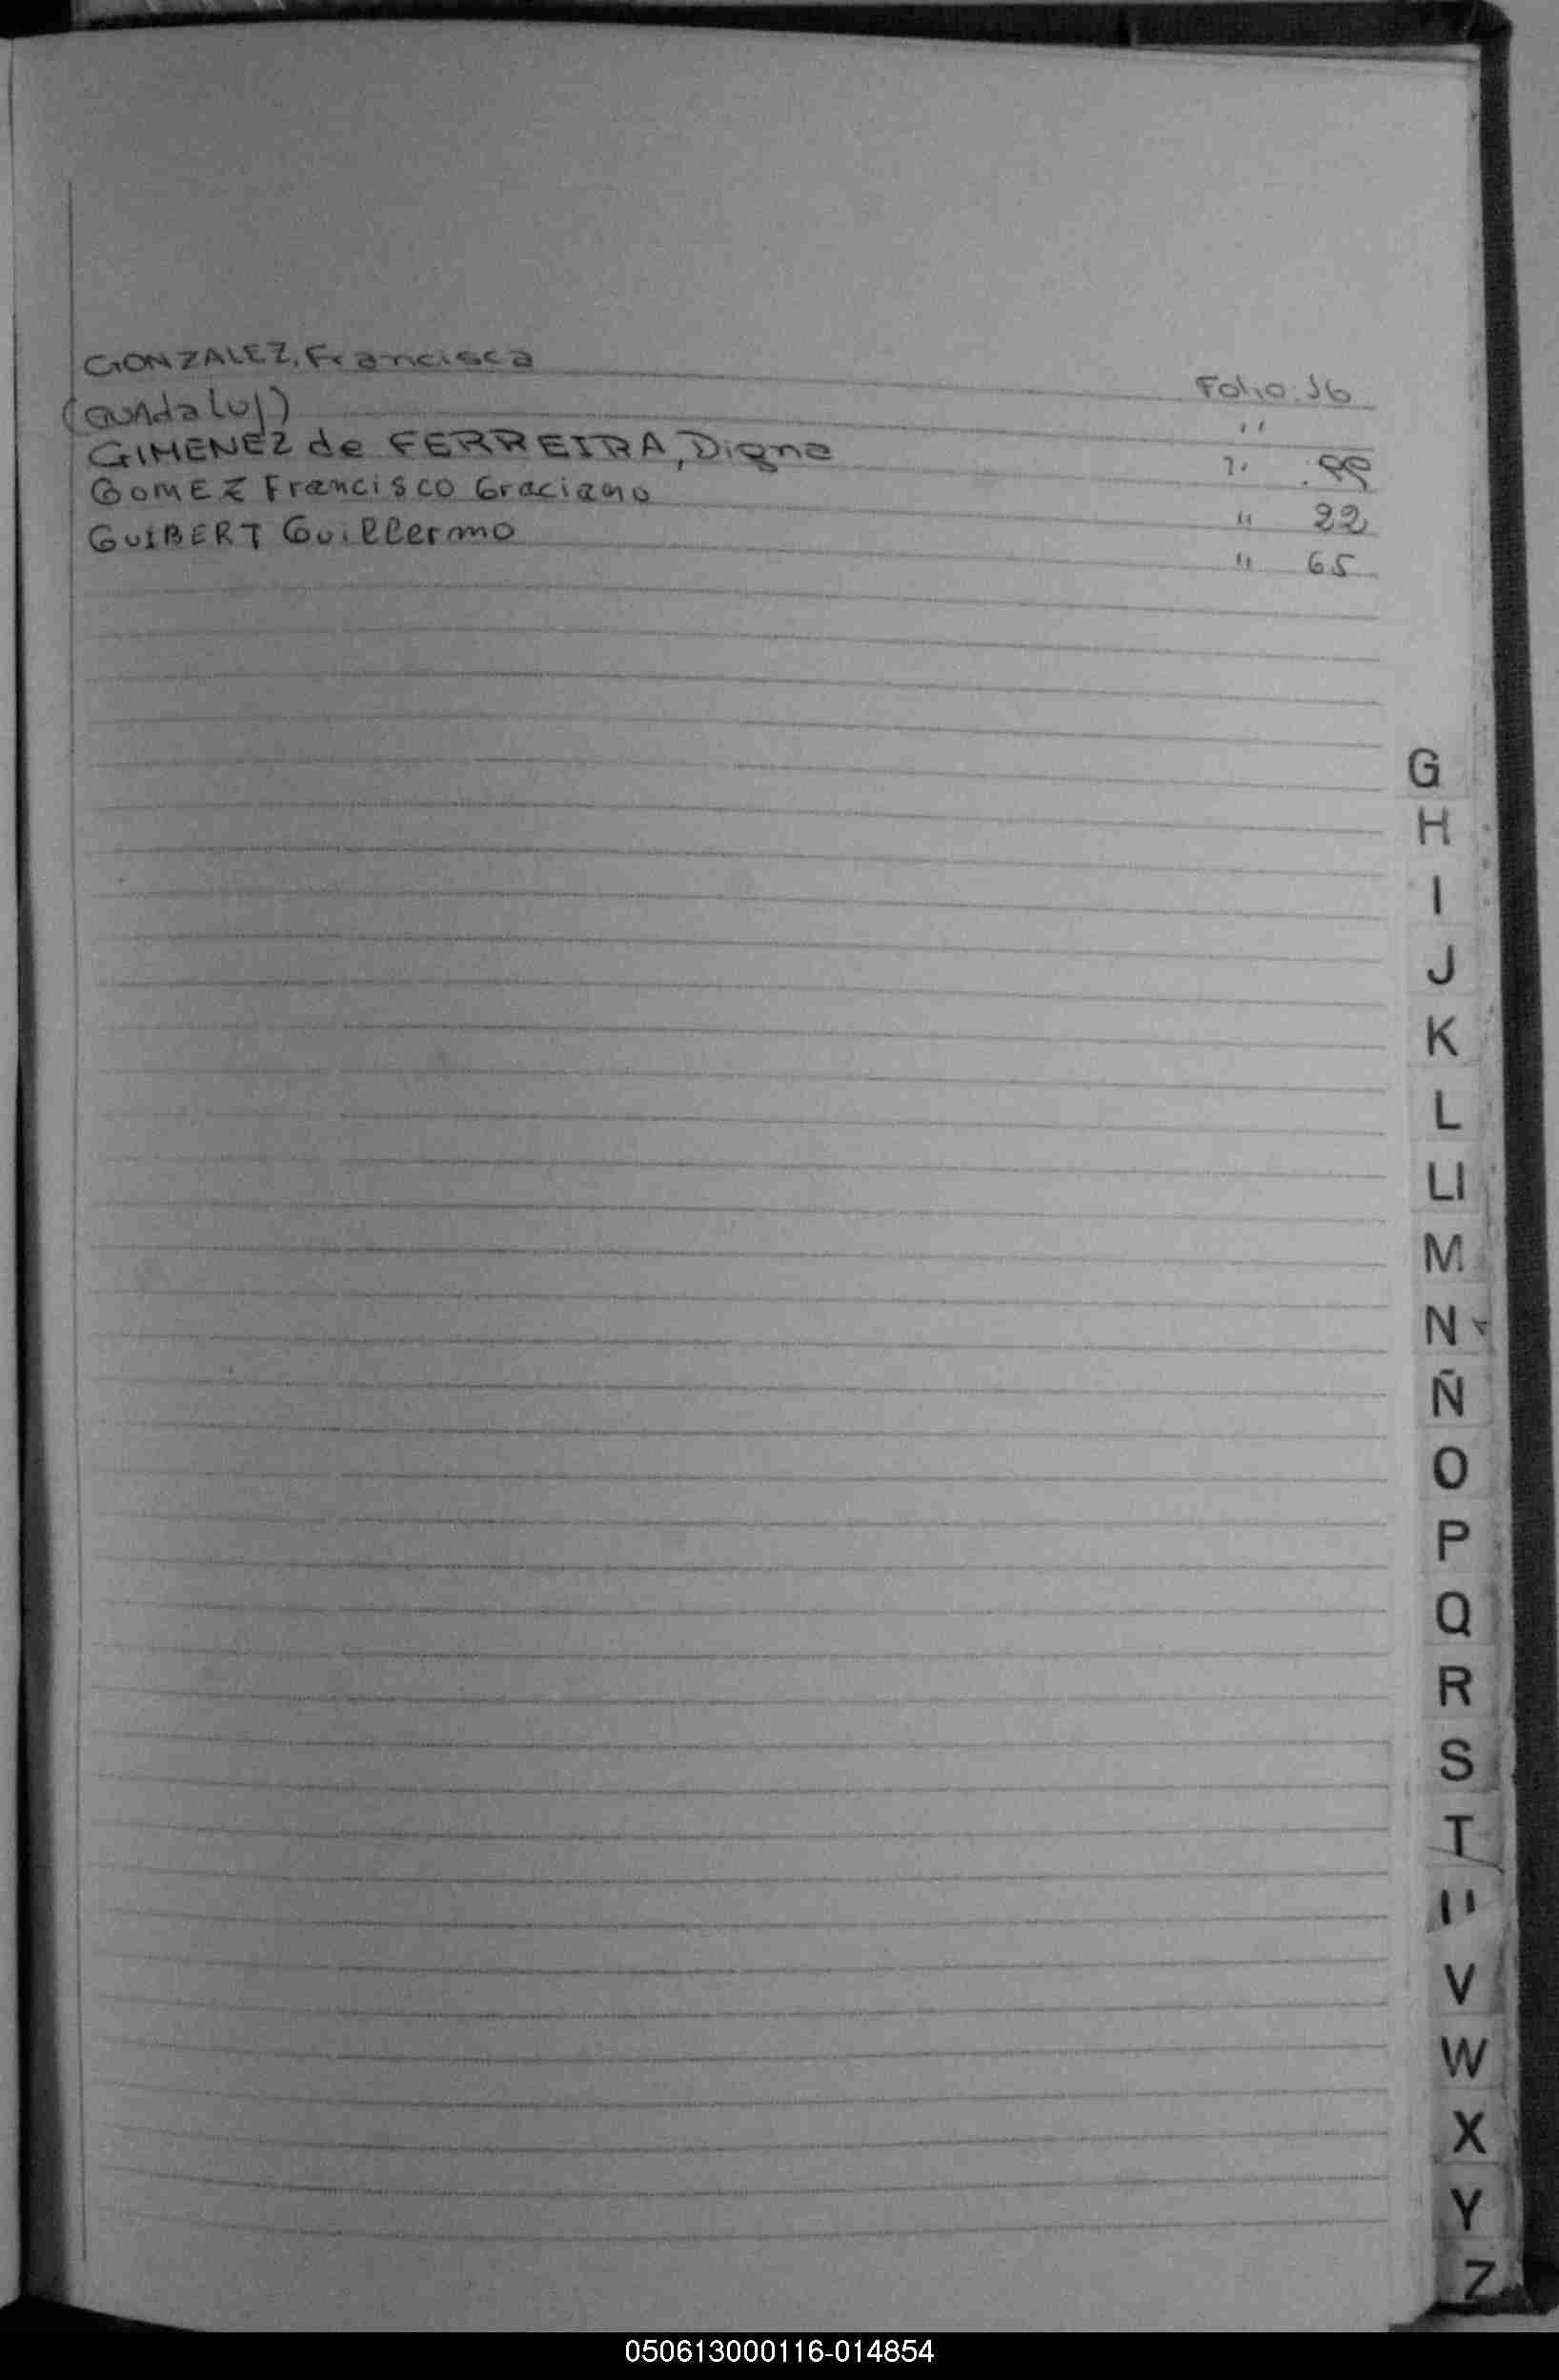 GONZALEZ, Francisca Folio. 56
(GUADaLUP) "
GIMENEZ de FERREIRA, Digna " 99
GOMEZ Francisco Graciano " 22
GUIBERT Guillermo " 65
G
H
I
J
K
L
Ll
M
N
Ñ
O
P
Q
R
S
T
U
V
W
X
Y
Z
050613000116-014854